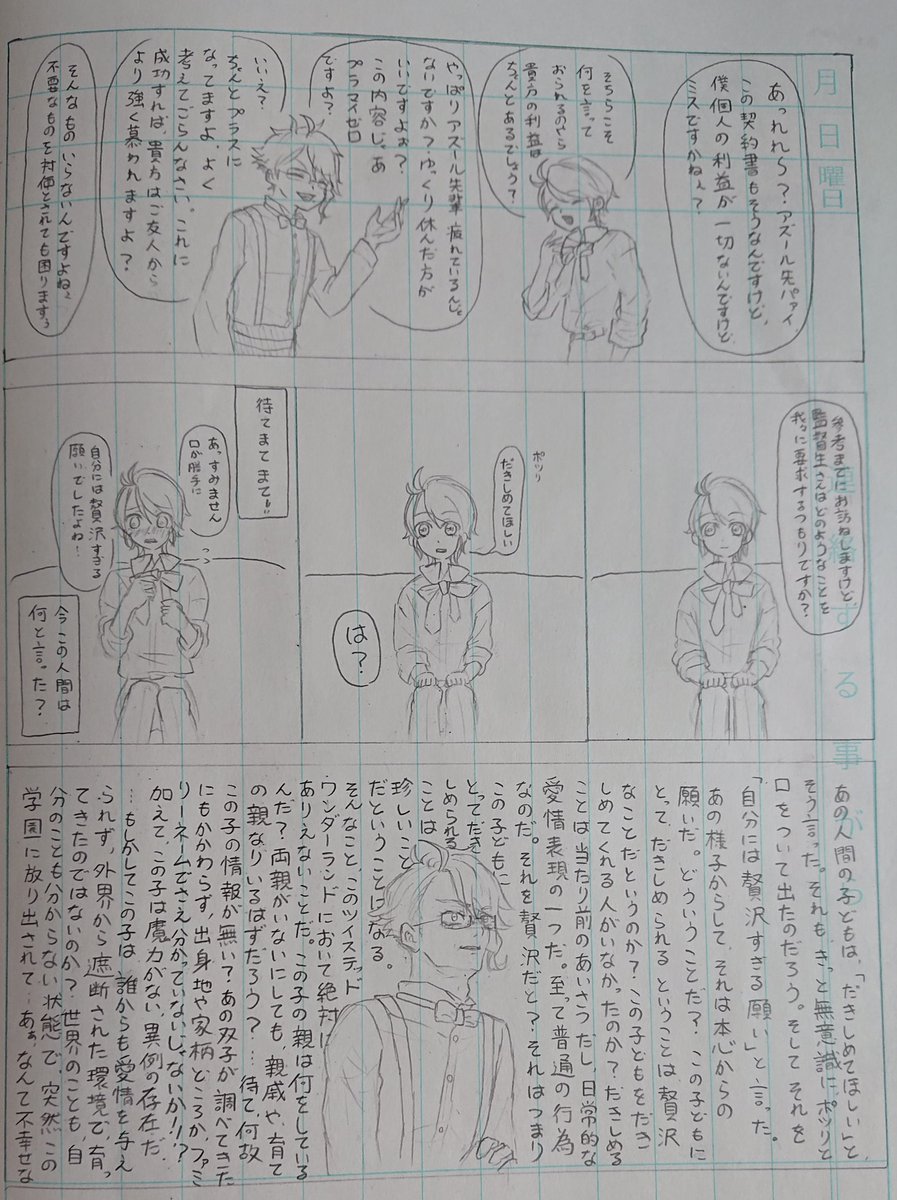 月　日　曜日
あっれれ～？アズール先パァイ、
この契約書もそうなんですけど、
僕個人の利益が一切ないんですけど
ミスですかねぇ？
そちらこそ
何を言って
おられるのやら
貴方の利益は
ちゃんとあるでしょう？
やっぱりアズール先輩 疲れているんじゃ
ないですかつゆっくり休んだ方が
いいですよぉ？
この内容じゃあ
プラマイゼロ
ですよ？
いいえ？
ちゃんとプラスに
なってますよ、よく
考えてごらんなさい。これに
成功すれば、貴方はご友人から
より強く慕われますよ？
そんなものいらないんですよね、
不要なものを対価とされても困りますぅ
参考までにお訪ねしますけど、
監督生さんはどのようなことを
我々に要求するつもりですか？
ポツリ
だきしめてほしい
は？
待てまてまて!!
あっすみません
口が勝手に
自分には贅沢すぎる
願いでしたよね…
今この人間は
何と言った？
あの人間の子どもは、「だきしめてほしい」と、
そう言った。それも、きっと無意識に、ポツリと
口をついて出たのだろう。そして それを
「自分には贅沢すぎる願い」と言った。
あの様子からして、それは本心からの
願いだ。どういうことだ？ この子どもに
とって、だきしめられるということは贅沢
なことだというのか？この子どもをだき
しめてくれる人がいなかったのか？だきしめる
ことは当たり前のあいさつだし、日常的な
愛情表現の一つだ。至って普通の行為
なのだ。それを贅沢だと？それはつまり
この子どもに
とってだき
しめられる
ことは
珍しいこと
だということになる。
そんなこと、このツイステッド
ワンダーランドにおいて絶対に
ありえないことだ。この子の親は何をしている
んだ？両親がいないにしても、親戚や、育て
の親なりいるはずだろう？…待て、何故
この子の情報が無い？あの双子が調べてきた
にもかかわらず、出身地や家柄どころか、ファミ
リーネームでさえ分かっていないじゃないか!!?
加えて、この子は魔力がない、異例の存在だ。
…もしかして、この子は、誰からも愛情を与え
られず、外界から遮断された環境で、育っ
てきたのではないのか？世界のことも、自
分のことも分からない状態で、突然この
学園に放り出されて…あぁ、なんて不幸せな